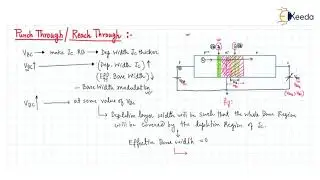 Punch Through / Reach Through :-
Keeda
V_BC → make J_C RB → Dep Width J_C thicker
V_BC↑ → (Dep. Width J_C) ↑
(Eff. Base Width) ↓
- Base Width modulation
V_BC↑ → at some value of V_BC
→ Depletion layer width will be such that the whole Base Region
will be covered by the depletion Region of J_C.
Effective Base width = 0
Fig:-